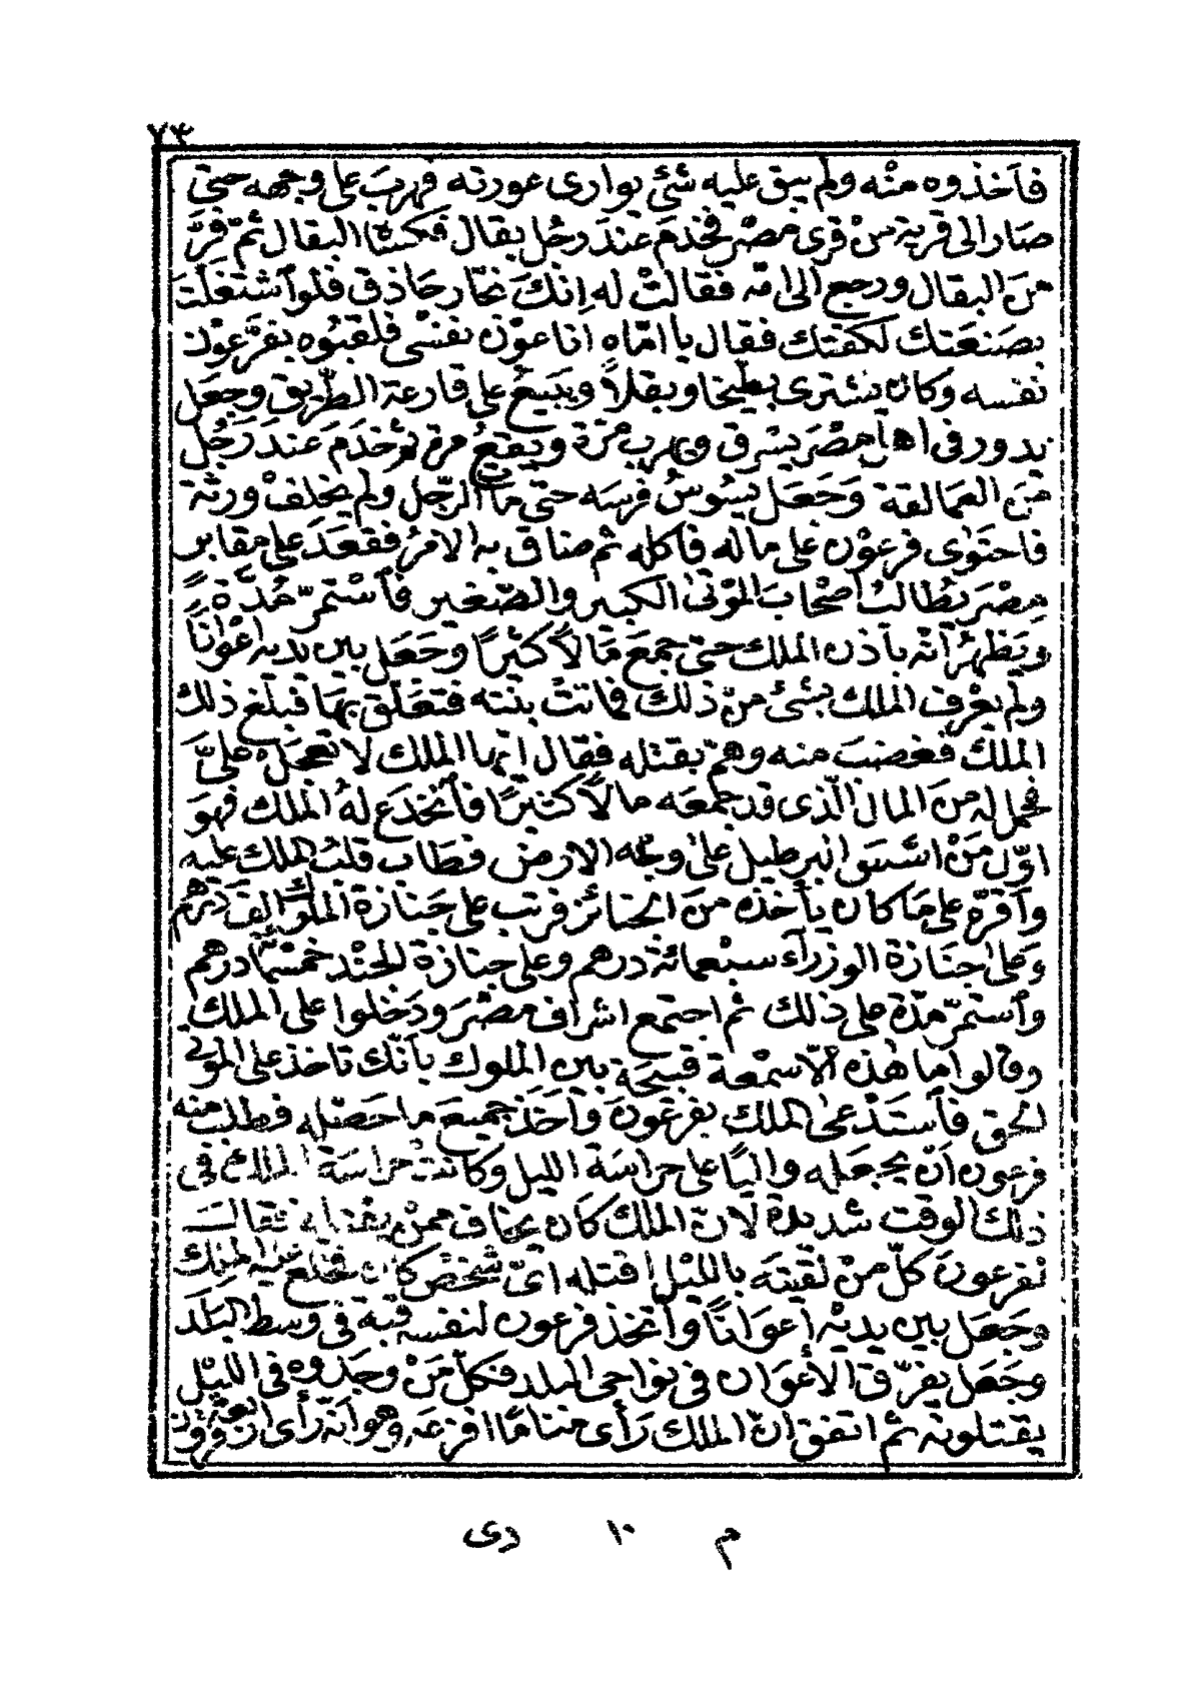 ٧٣
فأخذوه منْه ولم يبق عليه شئ يوارى عورته فهربَ على وجهه حتى
صَار الى قرية منْ قرى مصْر فخدمَ عندَ رجُل بقال فكسَاه البقال ثمّ فرَّ
منَ البقال ورجع الى امّه فقالتْ له اِنكَ نجّار حَاذق فلو اشتغلتَ
بصَنعَتك لكفتك فقال يا امّاه انا عوْن نفسى فلقبُوه بفرَّعوْن
نفسه وكان يشترى بطّيخا وبقلاً ويَبيعُ على قارعة الطّريق وجعَل
يدور فى اهل مصْرَ يسْرق ويهرب مرّة ويقعُ مرة ثم خدَمَ عندَ رَجُل
منَ العمالقة وَجَعَل يسُوسُ فرسَه حتى مات الرّجل ولم يخلفْ ورثة
فاحتوٰى فرعوْن على ماله فأكله ثم ضاق به الامرُ فقعَدَ على مقابر
مِصْرَ يُطالبُ اصْحابَ الموْتىٰ الكبير والصّغير فأسْتمرّ مُدّةً
وَيَظهرُ انّه بأذن الملك حتى جمعَ مَالاً كثيرًا وَجَعَل بين يديه اعْوٰانًا
ولم يعْرف الملك بشئ منْ ذلك فماتتْ بنته فتعَلّق بهَا فبلغ ذلك
الملكَ فغضبَ منه وهمّ بقتله فقال ايّها الملك لا تعجَل علىَّ
فحمل له منَ المال الّذى قد جمعَه مالاً كثيرًا فأنخدَع لهُ الملك فهوَ
اوّل منْ اسّسَ البرطيل علىٰ وجْه الارض فطَاب قلبُ الملك عليه
وأقرّه على مَا كان يأخذه منَ الجنائز فرتب على جَنازة الملوك الف درْهم
وَعلىٰ جنَازة الوزرآء سبْعمائة درهم وعلى جنازة الجنْد خمسْمائة درهم
وأستمرّ مدّة على ذلك ثم اجتمع اشراف مصْرَ ودَخلوا على الملك
وقالوا ما هٰذه الاّسمْعة قبيحَة بين الملوك بأنّك تأخذ على الموتٰى
الحق فأستَدْعىٰ الملك بفرعَون وأخَذ جميعَ ما حَصّله فطلبَ منه
فرعون أنّ يجعَله واليًا على حراسَة الليل وكانتْ حراسَة الملك فى
ذلكَ الوقت شديدة لانّ الملكَ كان يخاف ممنْ يقتله فقالَ
لفرعون كلّ منْ لقيتَه بالليْل اقتله اىّ شخْص كان فخلع عليه الملك
وَجَعَل بين يديْه إعوَانًا وأتخذ فرعون لنفسه قبة فى وسط البَلَد
وجَعَل يفرّق الأعوَان فى نواحى البلد فكلّ مَنْ وجدُوه فى الليْل
يقتلونه ثم اتفق انّ الملك رَأى منامًا افزعَه وهو انّه رَأى ان
م ١٠ دى